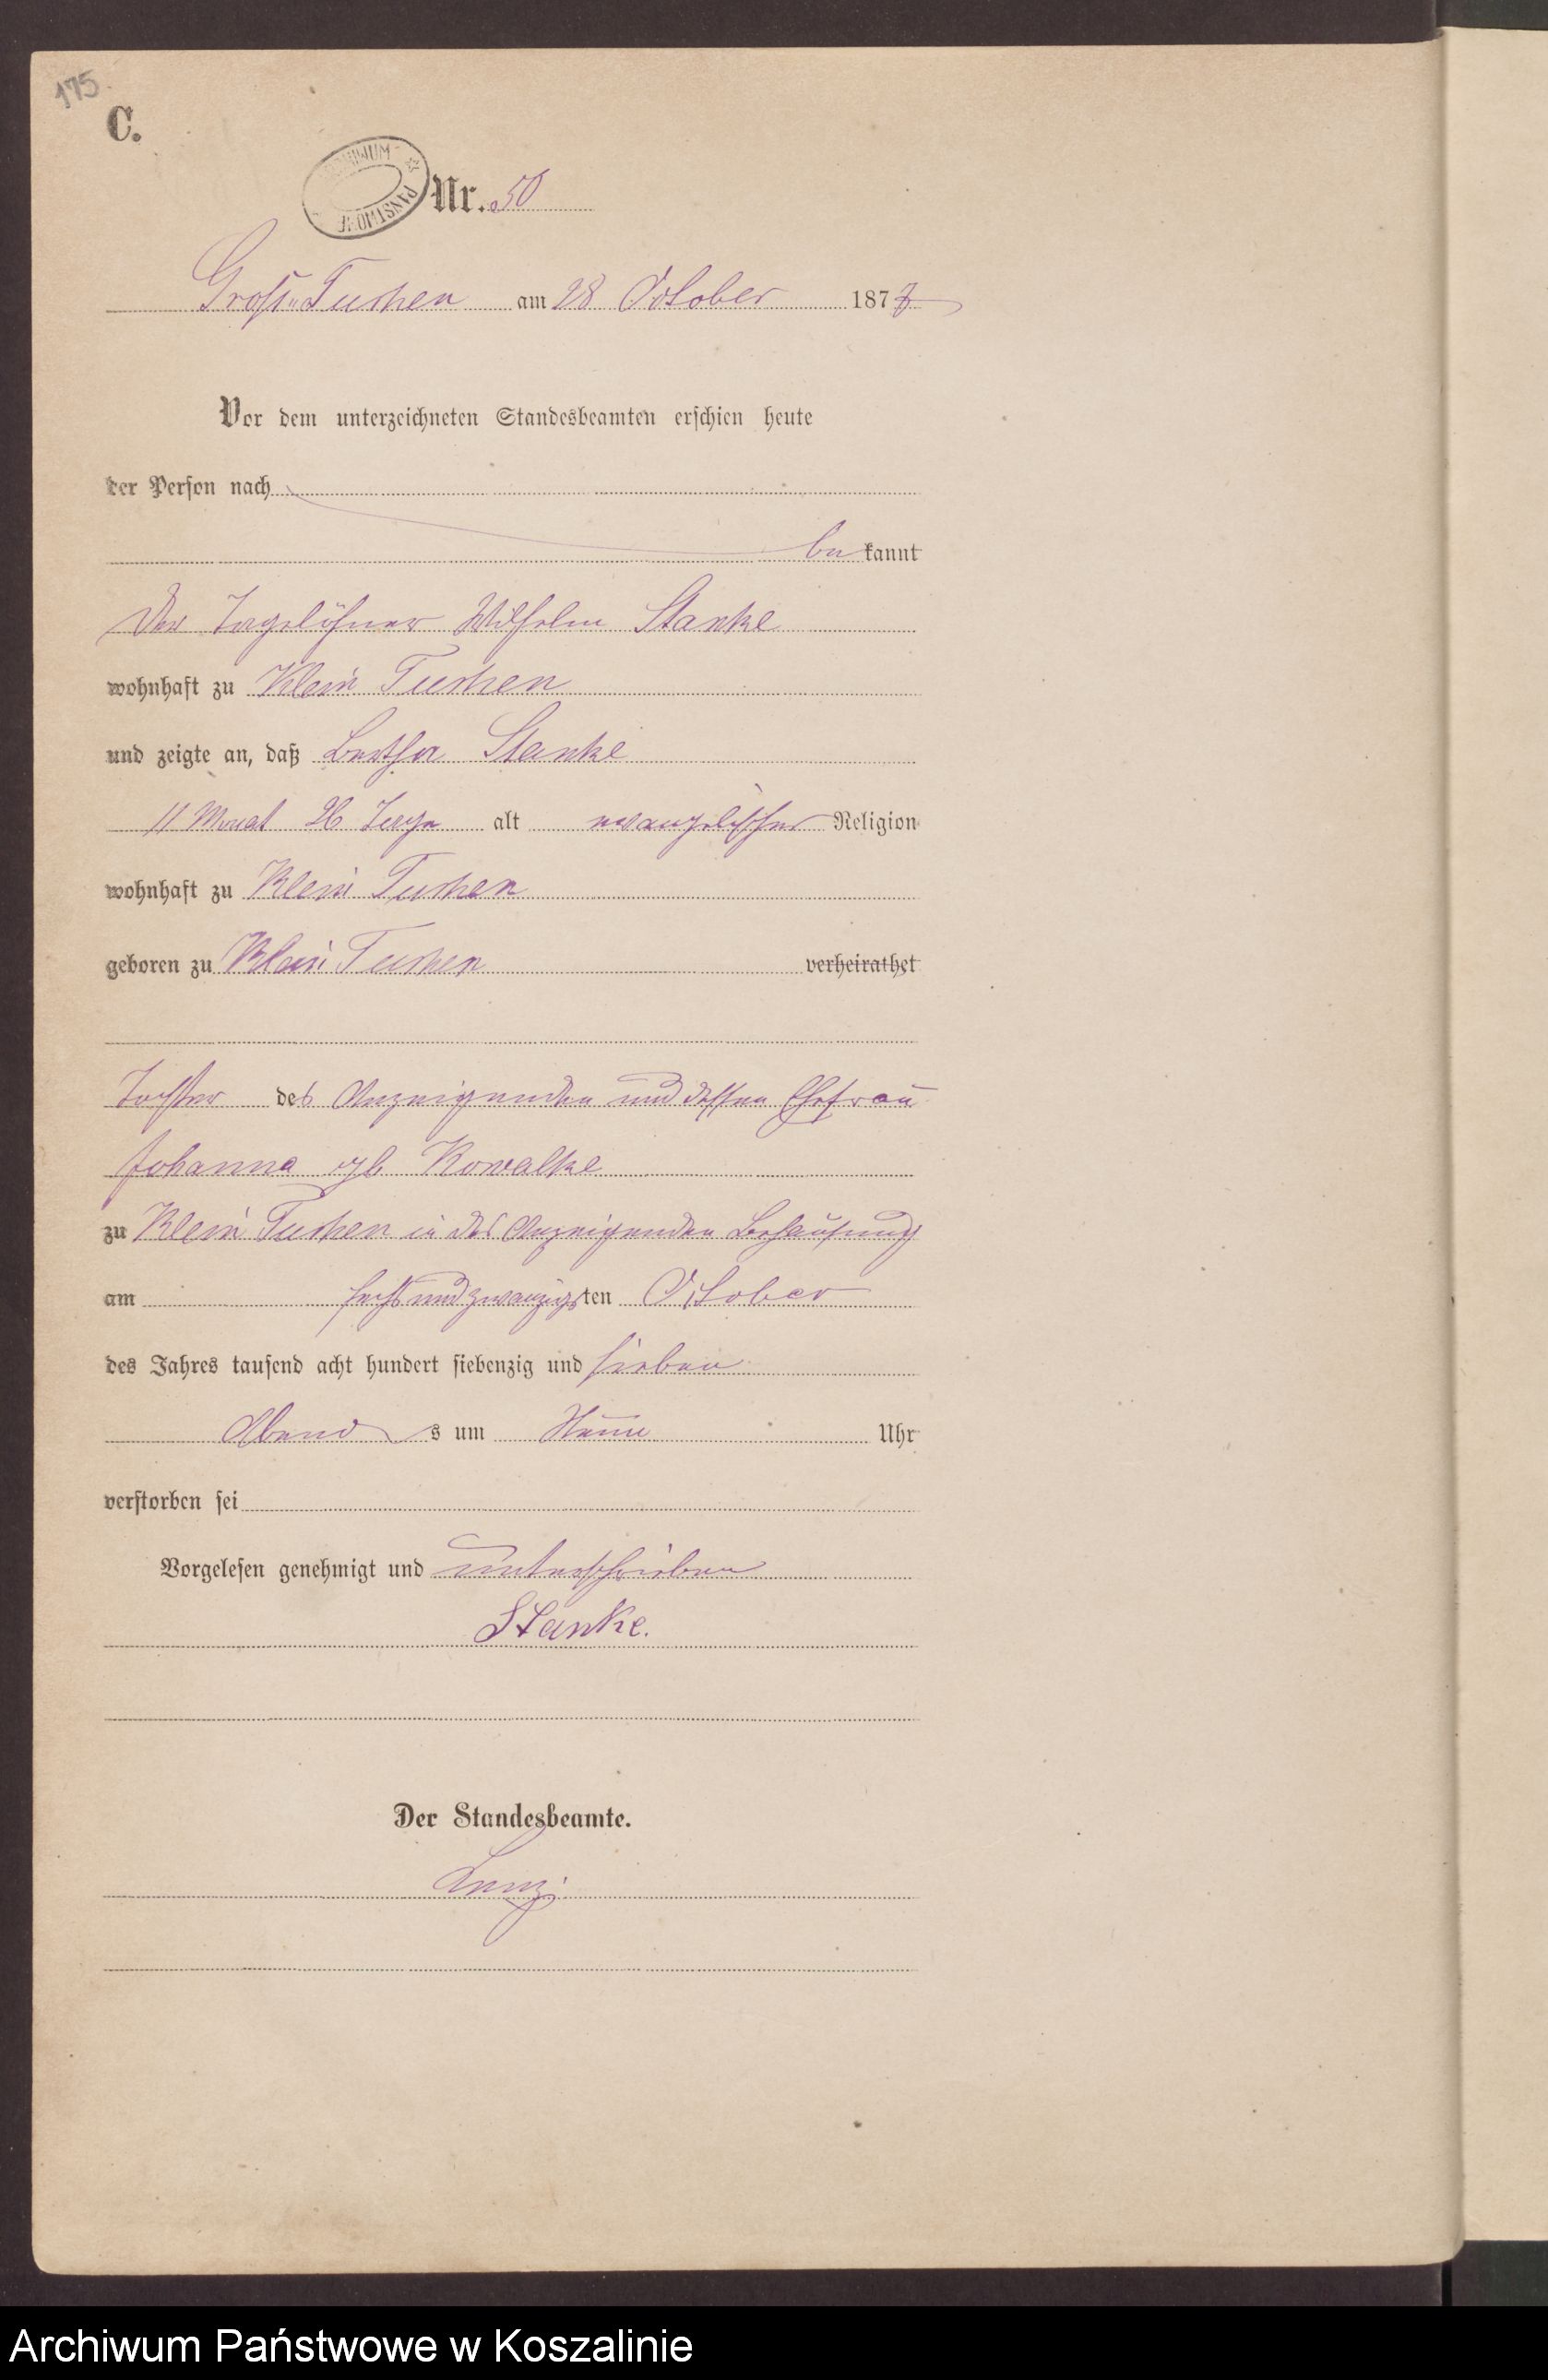 175
C.
ARCHIWUM PAŃSTWOWE
Nr. 50
Groß Tuchen am 28 October 1877
Vor dem unterzeichneten Standesbeamten erschien heute
der Person nach
bekannt
Der Tagelöhner Wilhelm Stanke
wohnhaft zu Klein Tuchen
und zeigte an, daß Bertha Stanke
11 Monat 26 Tage alt evangelischer Religion
wohnhaft zu Klein Tuchen
geboren zu Klein Tuchen verheirathet
Tochter des Anzeigenden und dessen Ehefrau
Johanna geb Kowalke
zu Klein Tuchen in des Anzeigenden Behausung
am sechs und zwanzigsten October
des Jahres tausend acht hundert siebenzig und sieben
Abend s um Uhr
verstorben sei
Vorgelesen genehmigt und unterschrieben
Stanke.
Der Standesbeamte.
Archiwum Państwowe w Koszalinie